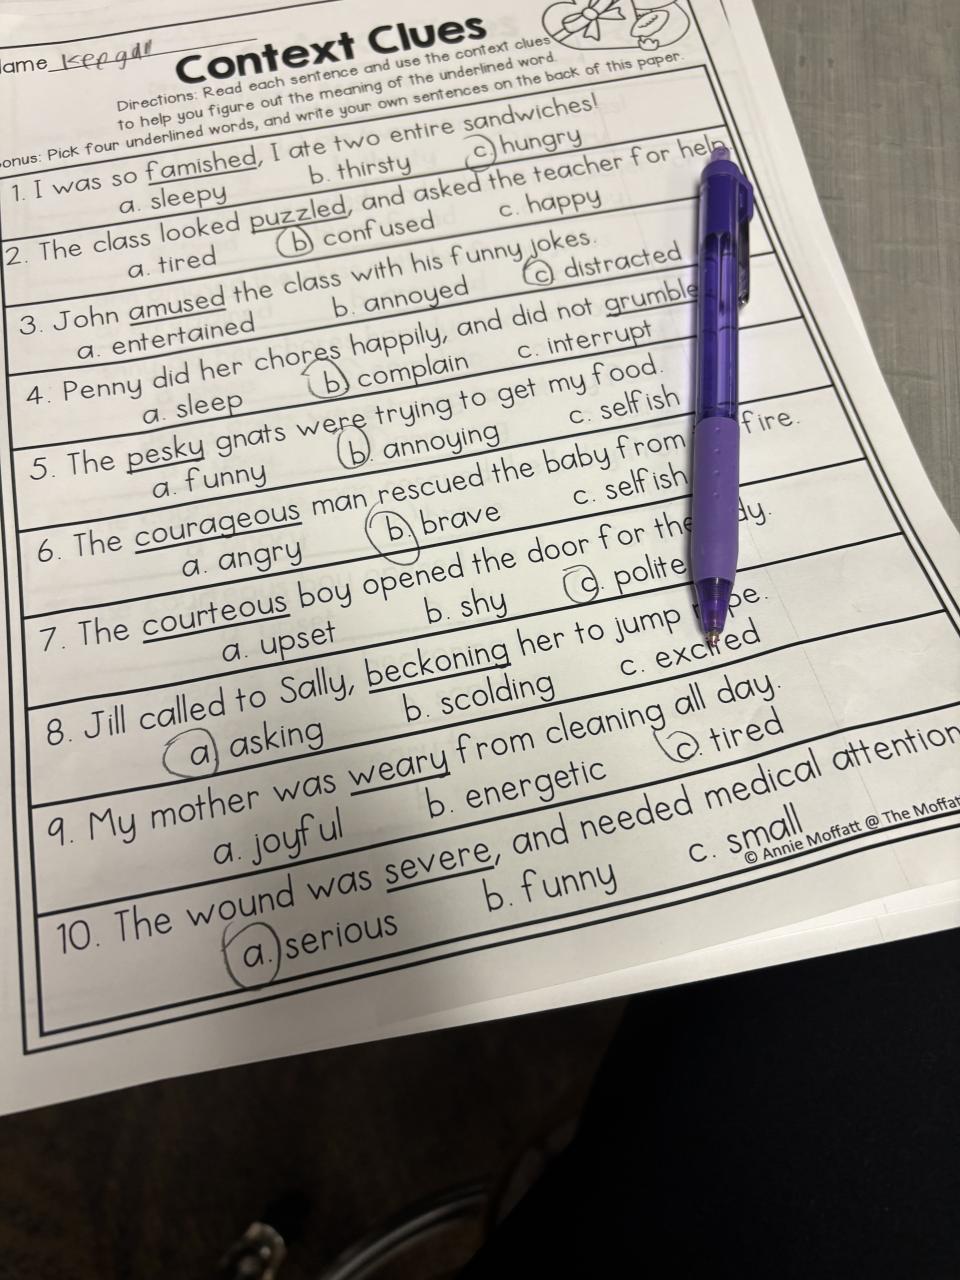 ame Keegan
Context Clues
Directions: Read each sentence and use the context clues
to help you figure out the meaning of the underlined word.
onus: Pick four underlined words, and write your own sentences on the back of this paper.
1. I was so famished, I ate two entire sandwiches!
a. sleepy b. thirsty c. hungry
2. The class looked puzzled, and asked the teacher for help.
a. tired b. confused c. happy
3. John amused the class with his funny jokes.
a. entertained b. annoyed c. distracted
4. Penny did her chores happily, and did not grumble
a. sleep b. complain c. interrupt
5. The pesky gnats were trying to get my food.
a. funny b. annoying c. selfish
6. The courageous man rescued the baby from fire.
a. angry b. brave c. selfish
7. The courteous boy opened the door for the dy.
a. upset b. shy c. polite
8. Jill called to Sally, beckoning her to jump pe.
a. asking b. scolding c. excited
9. My mother was weary from cleaning all day.
a. joyful b. energetic c. tired
10. The wound was severe, and needed medical attention
a. serious b. funny c. small
© Annie Moffatt @ The Moffat